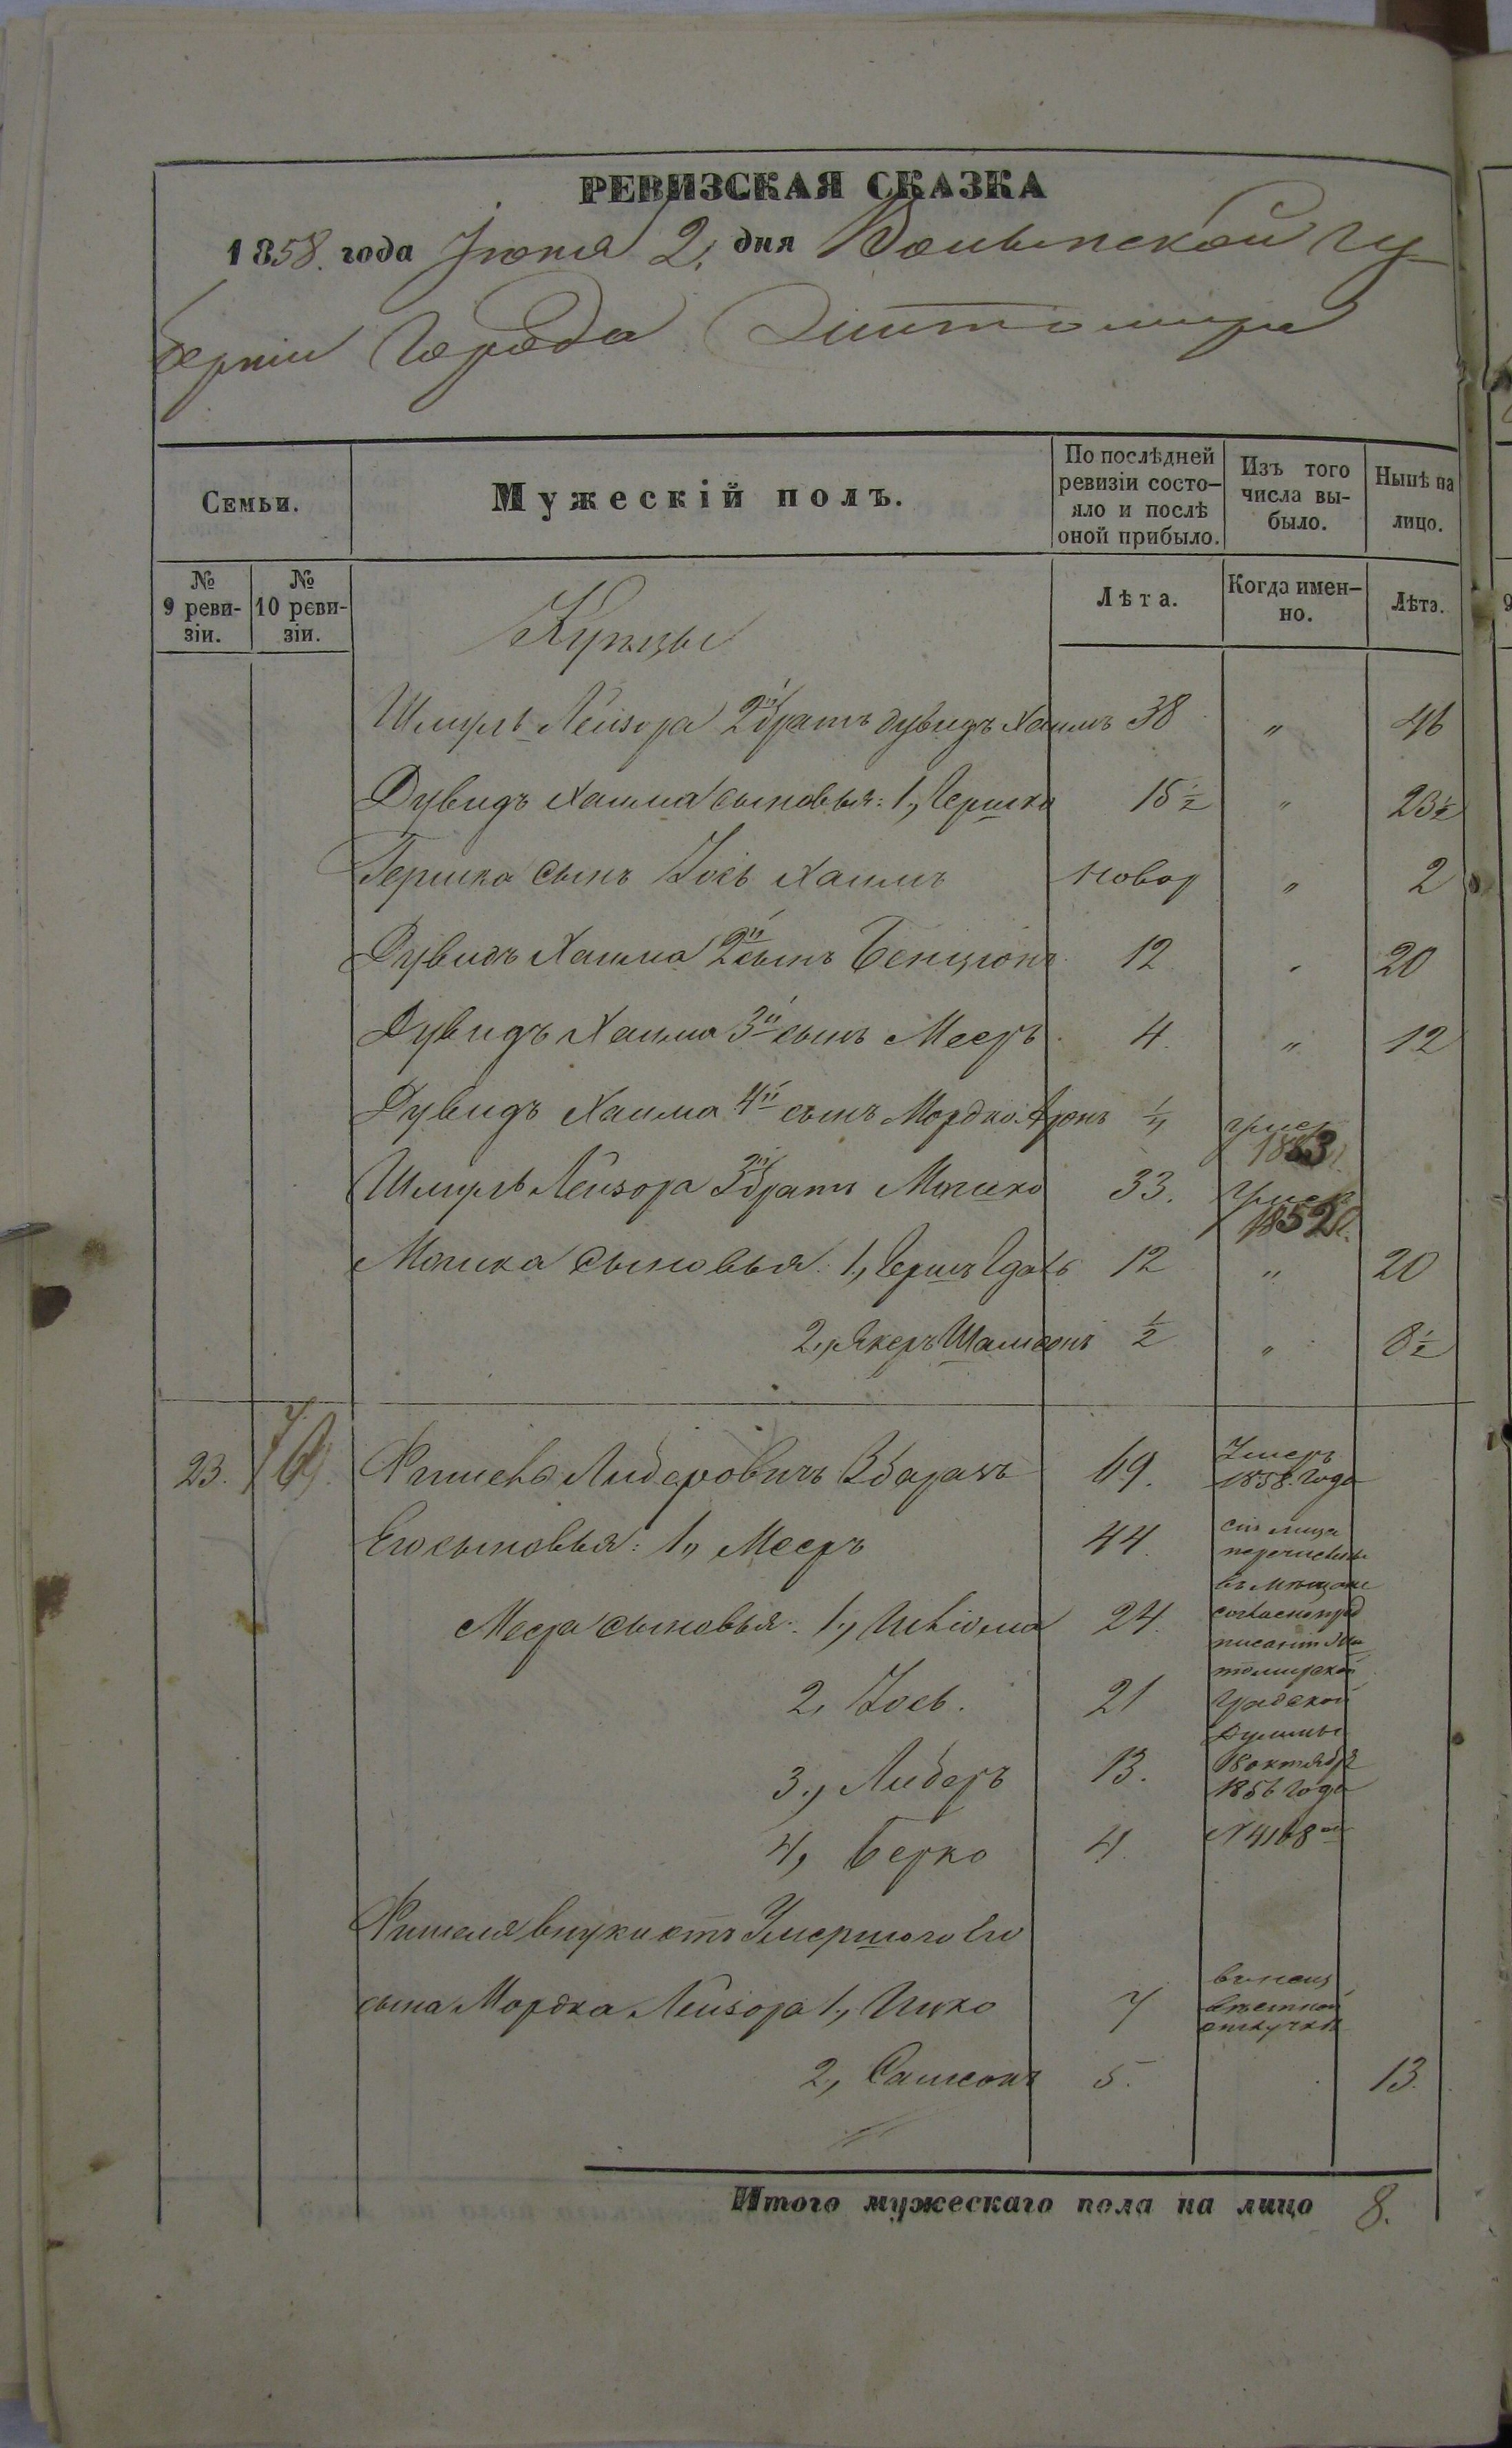 РЕВИЗСКАЯ СКАЗКА
1858. года Іюня 2, дня Волынской гу
берніи Города Житомира
Семьи.
Мужескій полъ.
По послѣдней ревизіи состо-яло и послѣ оной прибыло.
Изъ того числа вы-было.
Нынѣ на лицо.
№ 9 реви-зіи.
№ 10 реви-зіи.
Лѣта.
Когда имен-но.
Лѣта.
Купцы
Шмуль Лейзора 2й братъ Дувидъ Хаимъ 38 " 46
Дувидъ Хаима сыновья: 1, Гершко 15½ " 23½
Гершка сынъ Іось Хаимъ новор " 2
Дувидъ Хаима 2й сынъ Бенціонъ 12 " 20
Дувидъ Хаима 3й сынъ Мееръ 4. " 12
Дувидъ Хаима 4й сынъ Мордко Аронъ умер 1853
Шмуль Лейзора 3й братъ Мошко 33. умеръ 1852 г.
Мошка сыновья: 1, Герш 12 " 20
2, Шамсонъ ½ " 8½
23. Фишель Лидеровичъ Збаражъ 69. Умеръ 1858. Года
Его сыновья: 1, Мееръ 44.
сіи лица
перечислены
въ мѣщане
согласно пред
писанію Жи
томирской
Градской
Думы
18 октября
1856 Года
N 4168
Меера сыновья: 1, Шліома 24.
2, Іось. 21
3, Лидеръ 13.
4, Берко 4.
Фишеля внуки отъ Умершого Его
сына Мордка Лейзора 1, Ицко 7
въ неиз
вѣстной
отлучкѣ
2, Самсонъ 5. 13.
Итого мужескаго пола на лицо 8.